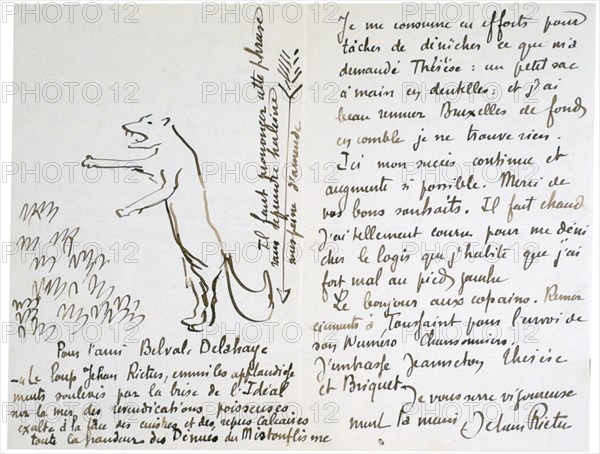 Pour l'ami Belval-Delahaye
— "Le Loup Jehan Rictus, emmi les applaudisse
ments soulevés par la brise de l'Idéal
sur la mer des revendications poisseuses.
exalte à la face des cuistres et des repus calcaires
toute la grandeur des Dénués du Mistouflisme
Il faut prononcer cette phrase
sans reprendre haleine
sous peine d'amende
Je me consume en efforts pour
tâcher de dénicher ce que m'a
demandé Thérèse : un petit sac
à main en dentelles : et j'ai
beau remuer Bruxelles de fond
en comble je ne trouve rien.
Ici mon succès continue et
augmente si possible. Merci de
vos bons souhaits. Il fait chaud
J'ai tellement couru pour me déni
cher le logis que j'habite que j'ai
fort mal au pied gauche
Le bonjour aux copains. Remer
ciements à Toussaint pour l'envoi de
son Numéro Chansonniers.
J'embrasse Jeanneton Thérèse
et Briquet
Je vous serre vigoureuse
ment la main Jehan Rictus
PHOTO12